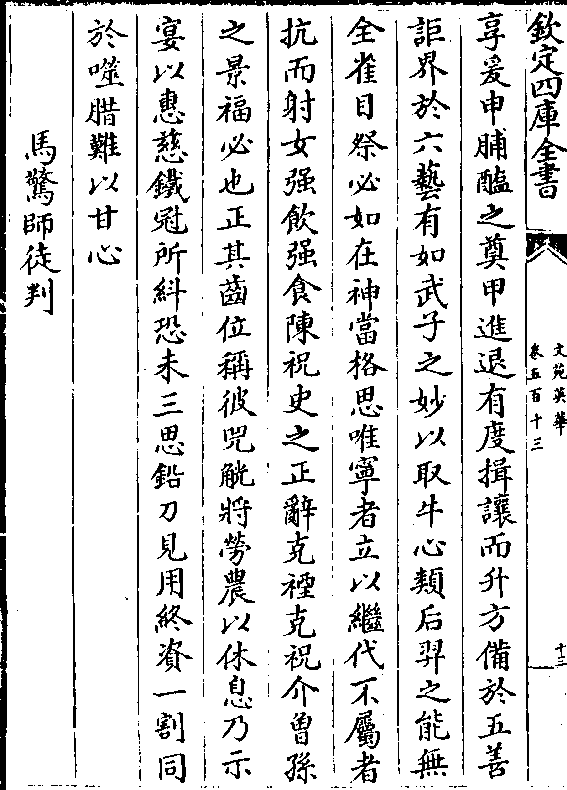 欽定四庫全書
文苑英華
卷五百十三
十三
享爰申脯醢之奠甲進退有度揖讓而升方備於五善
詎界於六藝有如武子之妙以取牛心類后羿之能無
全雀目祭必如在神當格思唯寧者立以繼代不屬者
抗而射女强飲强食陳祝史之正辭克禋克祝介曾孫
之景福必也正其齒位稱彼兕觥將勞農以休息乃示
宴以惠慈鐵冠所糾恐未三思鉛刀見用終資一割同
於噬腊難以甘心
馬驚師徒判